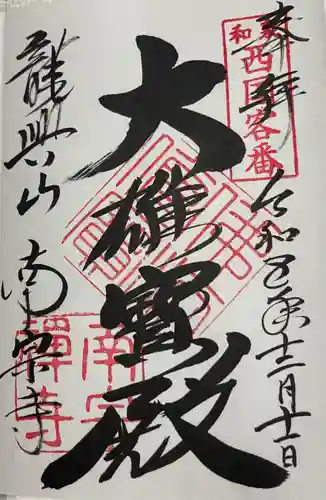 奉拝
令和五年十二月十一日
和泉
西国客番
大雄寶殿
龍興山
南宗寺
南宗
禅寺